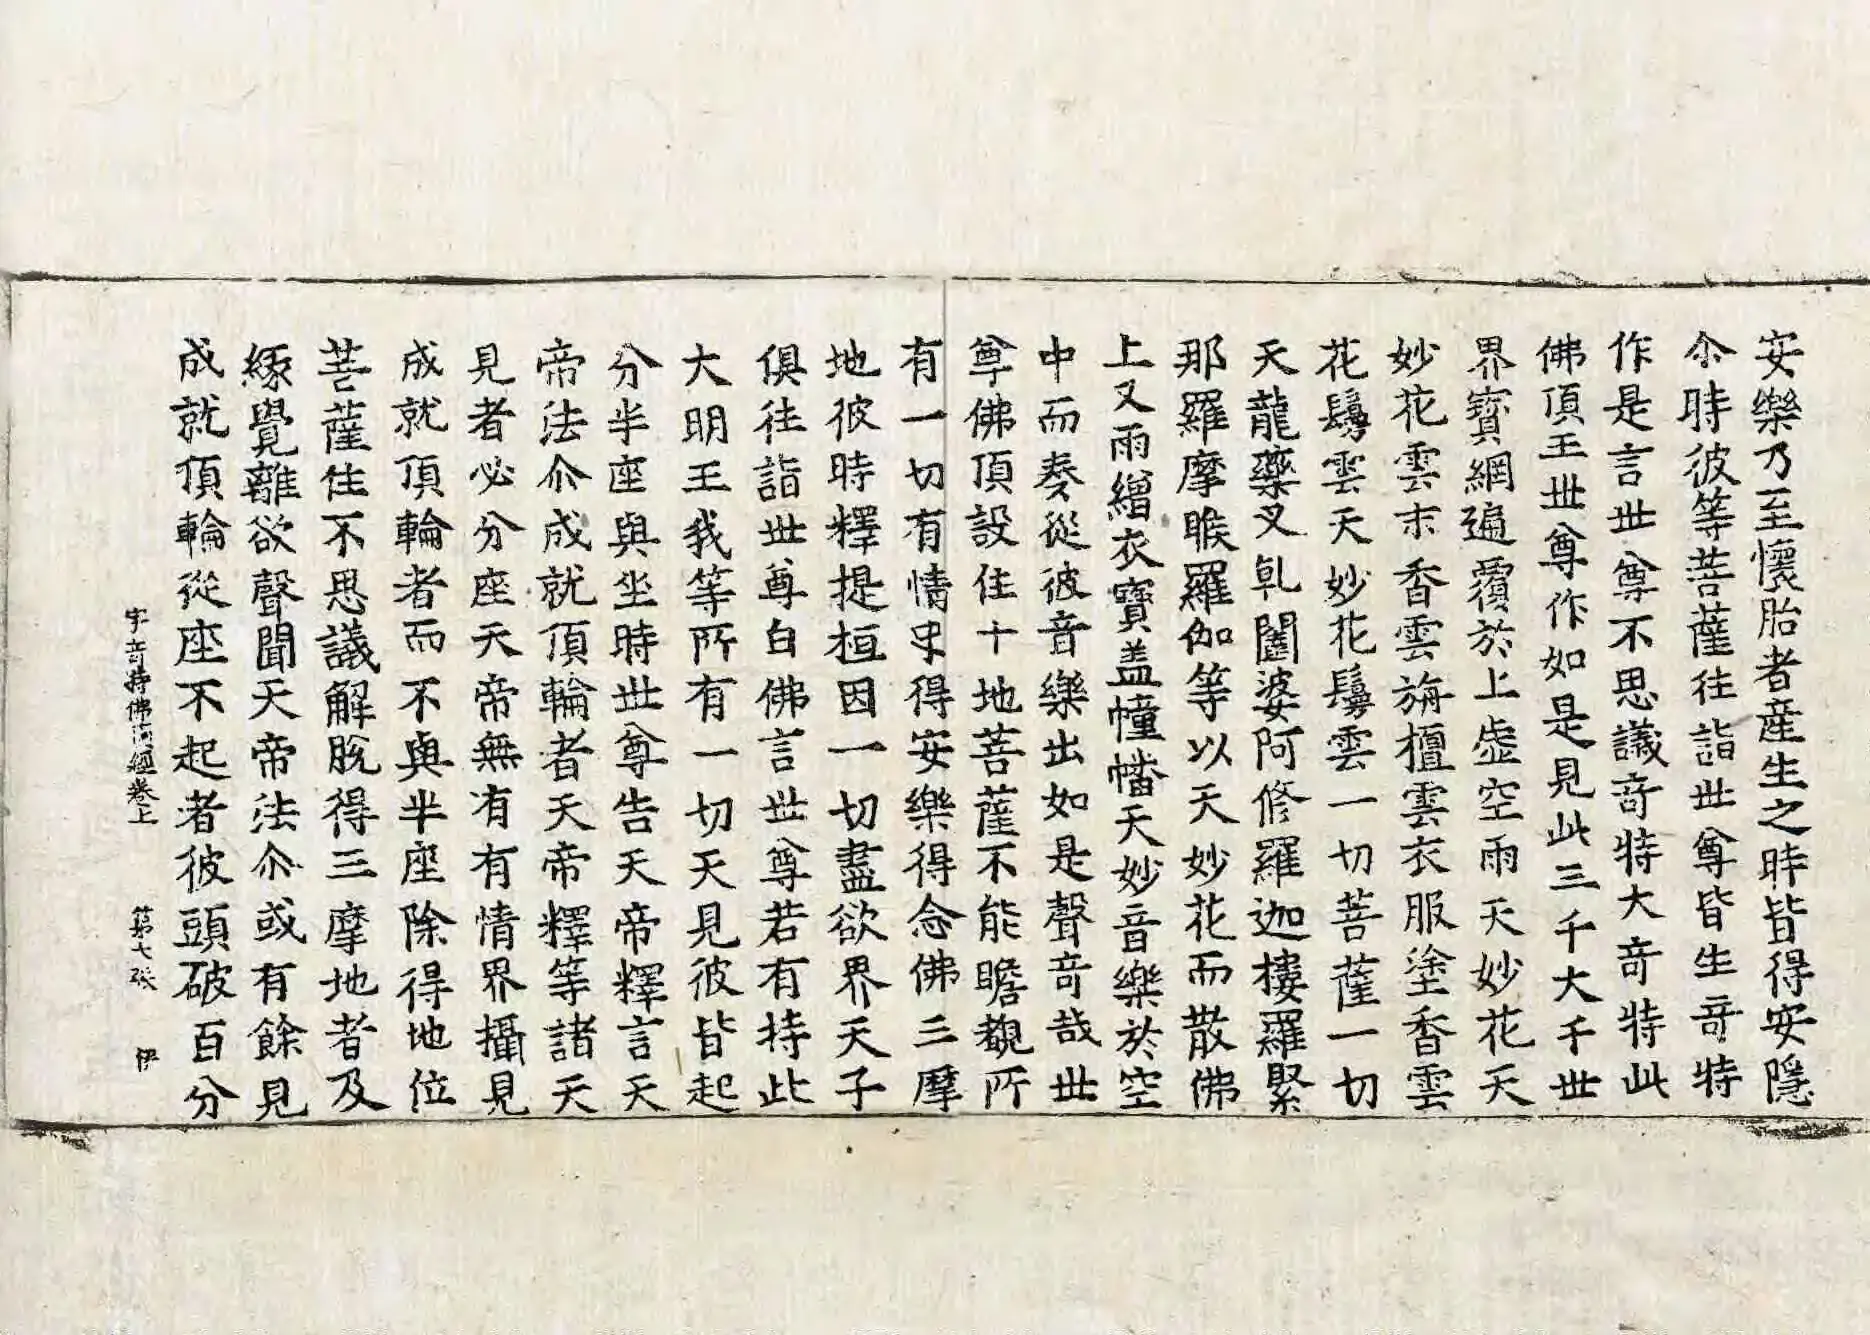 安樂乃至懷胎者産生之時皆得安隱
尒時彼等菩薩往詣世尊皆生竒特
作是言世尊不思議竒特大竒特此
佛頂王世尊作如是見此三千大千世
界寶網遍覆於上虛空雨天妙花天
妙花雲末香雲旃檀雲衣服塗香雲
花鬘雲天妙花鬘雲一切菩薩一切
天龍藥叉乹闥婆阿修羅迦樓羅緊
那羅摩睺羅伽等以天妙花而散佛
上又雨繒衣寶盖幢幡天妙音樂於空
中而奏從彼音樂出如是聲竒哉世
尊佛頂設住十地菩薩不能瞻覩所
有一切有情㝵得安樂得念佛三摩
地彼時釋提桓因一切盡欲界天子
俱往詣世尊白佛言世尊若有持此
大明王我等所有一切天見彼皆起
分半座與坐時世尊告天帝釋言天
帝法尒成就頂輪者天帝釋等諸天
見者必分座天帝無有有情界攝見
成就頂輪者而不與半座除得地位
菩薩住不思議解脫得三摩地者及
緣覺離欲聲聞天帝法尒或有餘見
成就頂輪從座不起者彼頭破百分
字竒特佛頂經卷上 第七張 伊